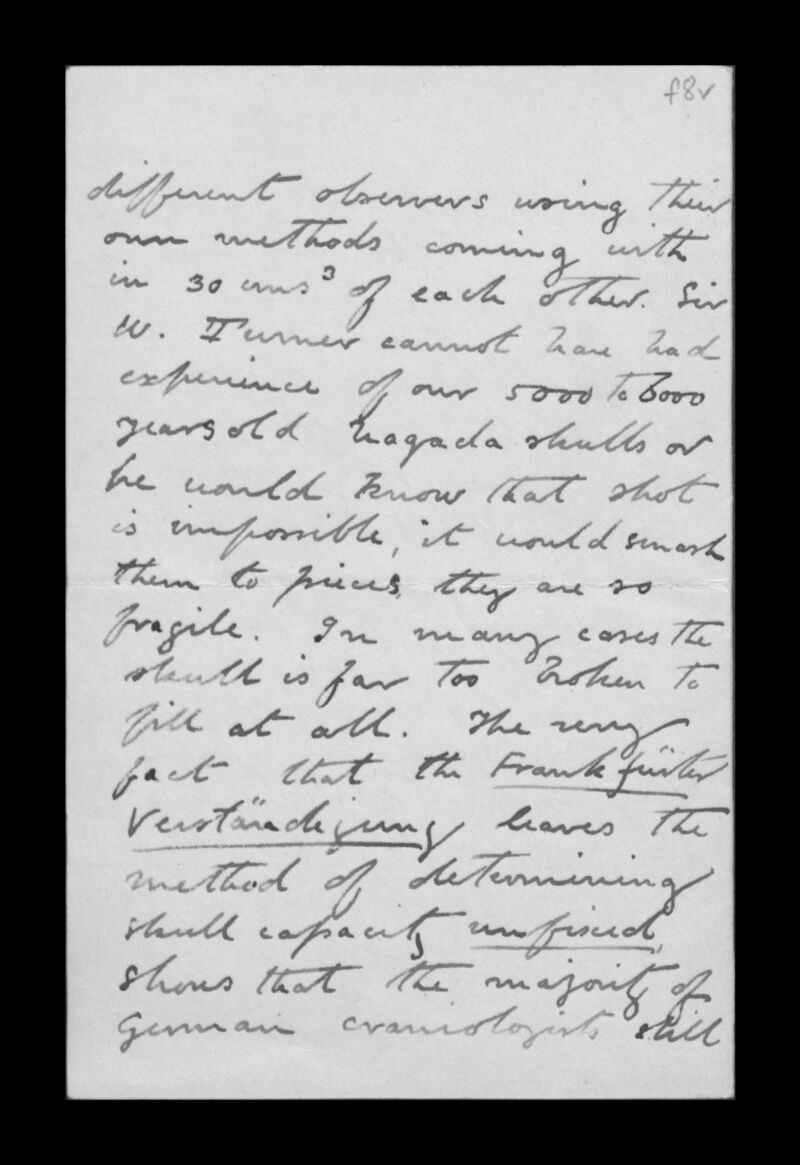 f8v
different observers using their
own methods coming with
in 30 cms³ of each other. Sir
W. Turner cannot have had
experience of our 5000 to 6000
years old Nagada skulls or
he would know that shot
is impossible, it would smash
them to pieces, they are so
fragile. In many cases the
skull is far too broken to
fill at all. The very
fact that the Frankfürter
Verständigung leaves the
method of determining
skull capacity unfixed,
shows that the majority of
German craniologists still